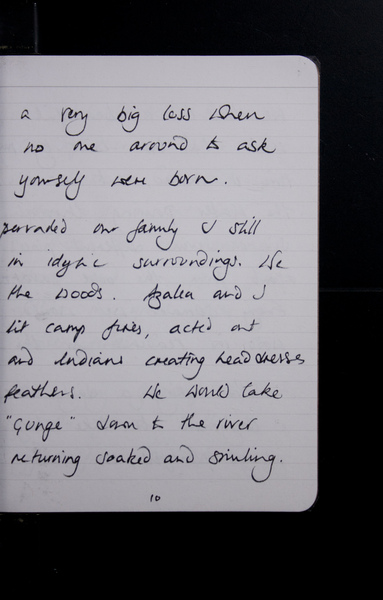 a very big loss when
no one around to ask
yourself were born.
pervaded our family I still
in idyllic surroundings. We
the woods. Azalea and I
lit camp fires, acted out
and Indians creating headdresses
feathers. We would take
"Gunge" down to the river
returning soaked and smiling.
10